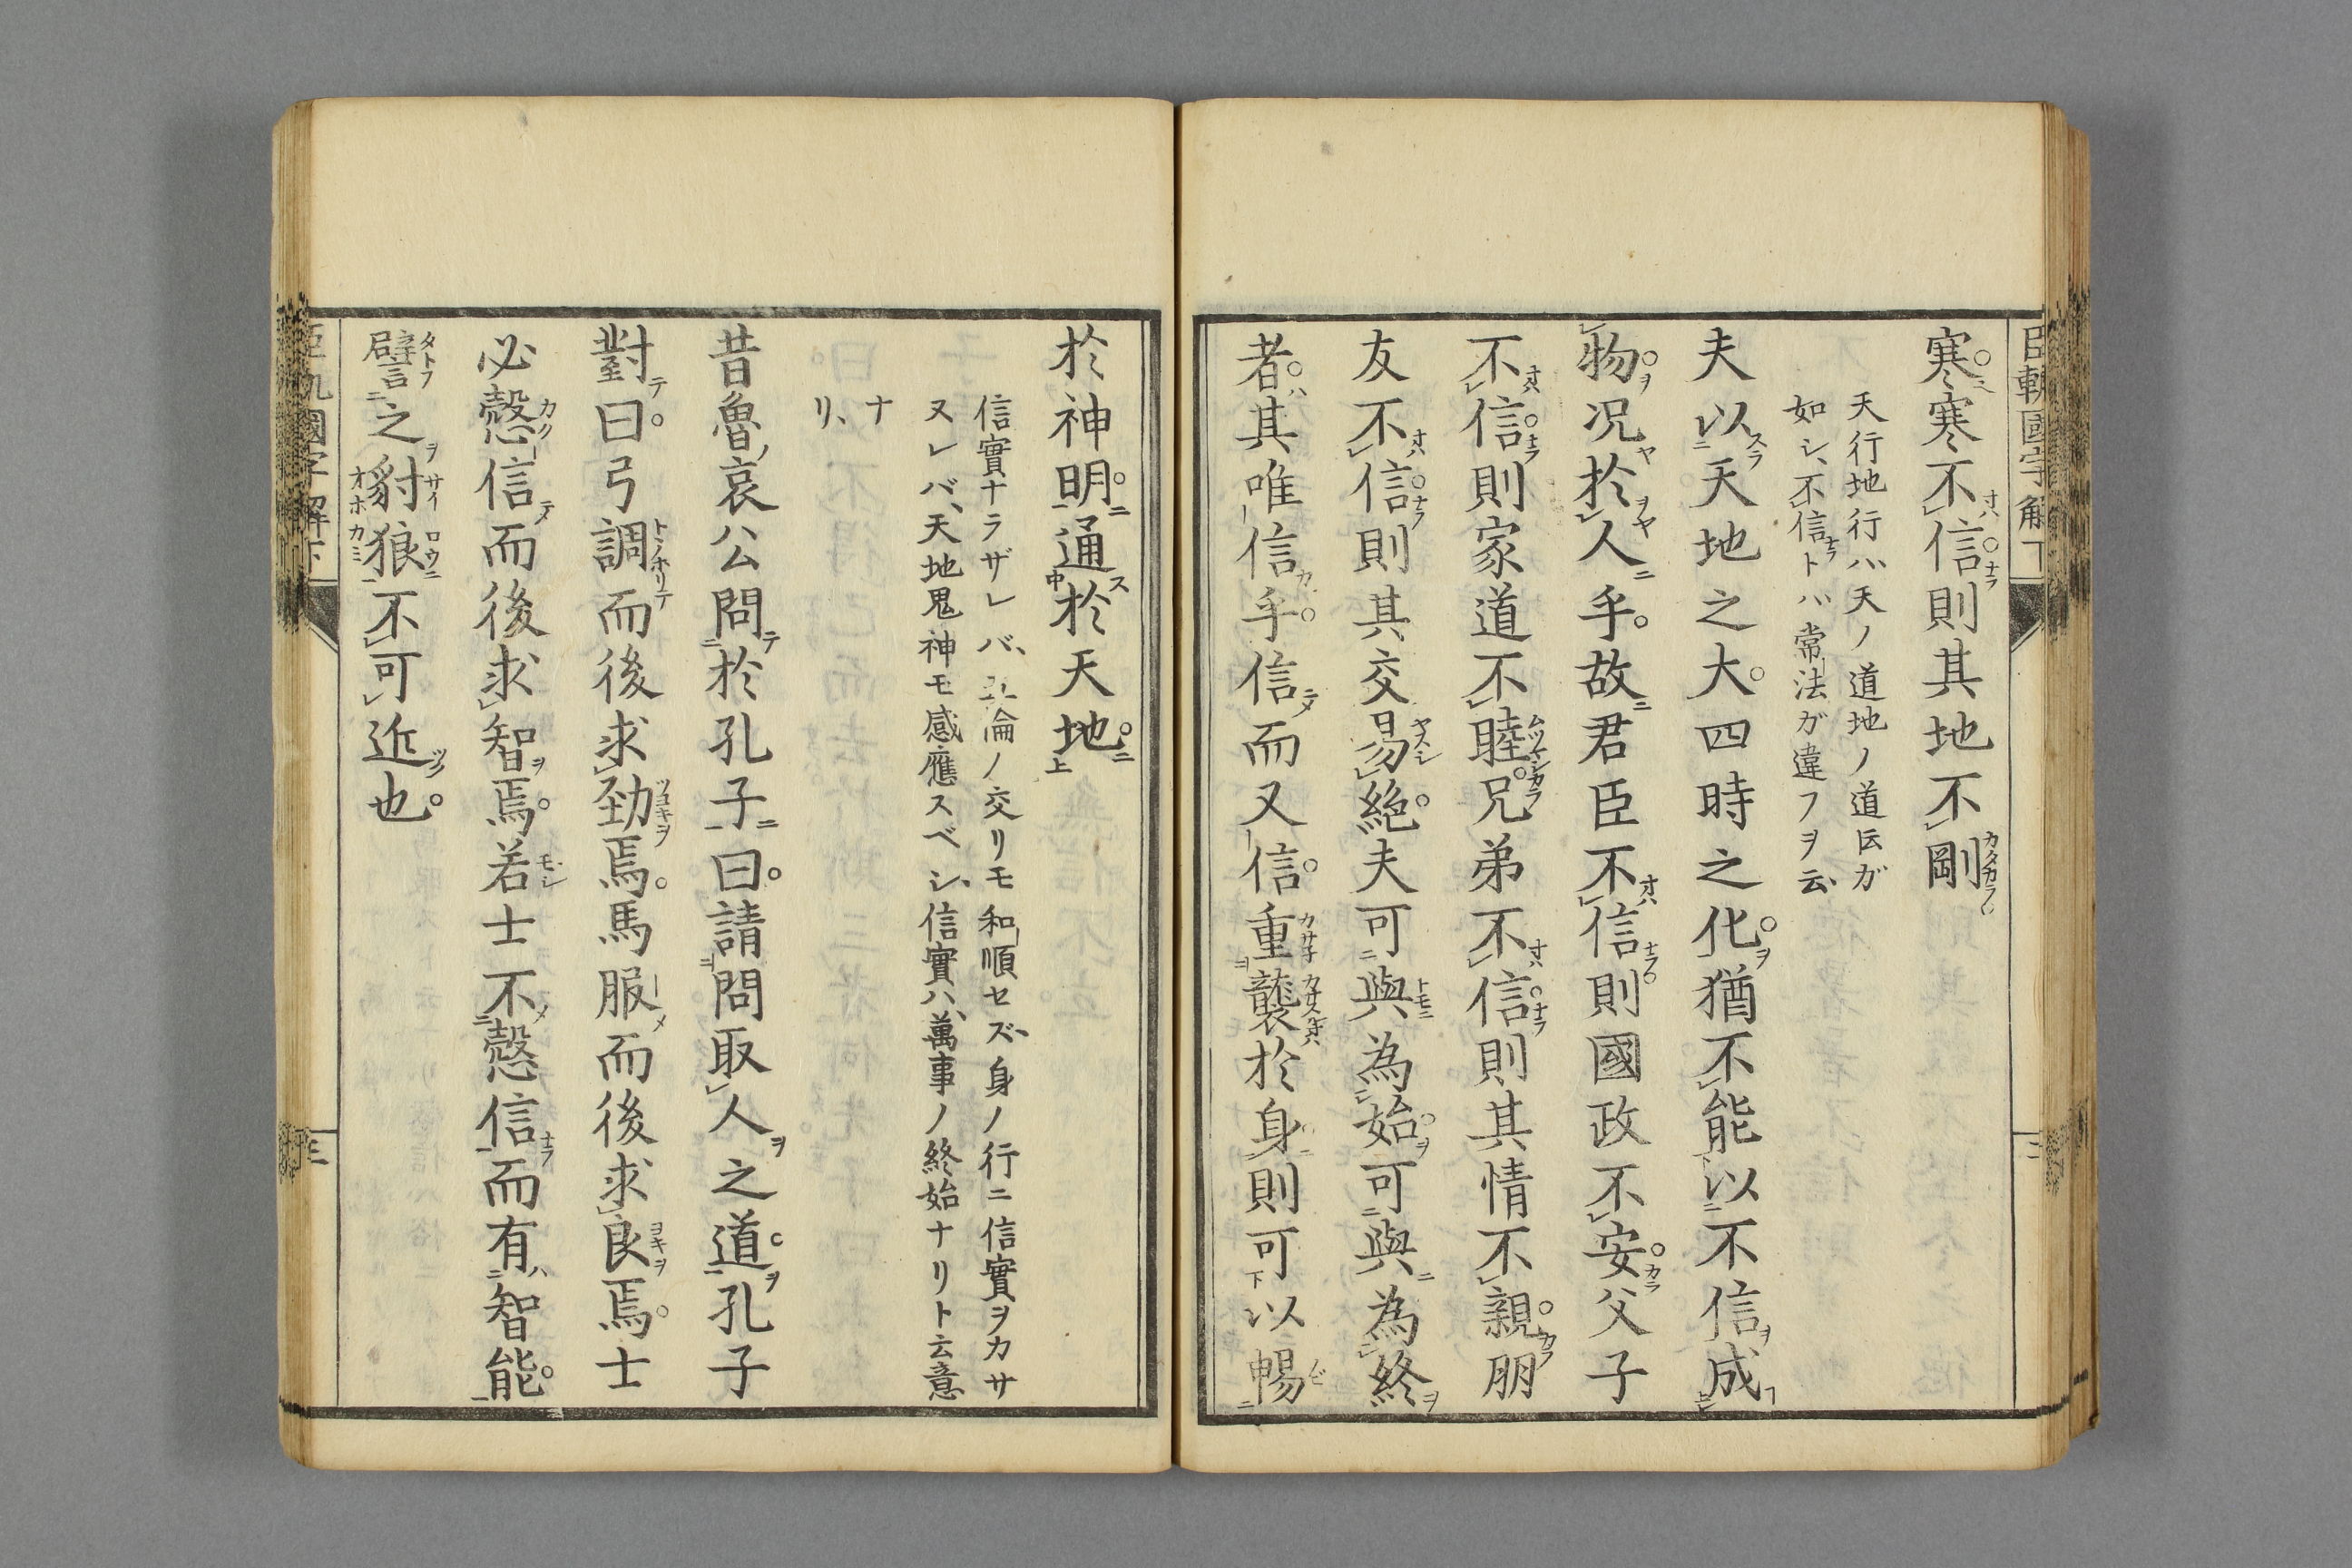 臣軌國字解下
寒寒不信則其地不剛
天行地行ハ天ノ道地ノ道㕝ガ
如シ、不信トハ常法ガ違フヲ云、
夫以天地之大四時之化猶不能以不信成
物况於人乎故君臣不信則國政不安父子
不信則家道不睦兄弟不信則其情不親朋
友不信則其交易絶夫可與為始可與為終
者其唯信乎信而又信重襲於身則可以暢
於神明通於天地
信實ナラザレバ、五倫ノ交リモ和順セズ、身ノ行ニ信實ヲカサ
ヌレバ、天地鬼神モ感應スベシ、信實ハ、萬事ノ終始ナリト云意
ナ
リ、
昔魯哀公問於孔子曰請問取人之道孔子
對曰弓調而後求勁焉馬服而後求良焉士
必愨信而後求智焉若士不愨信而有智能
譬之豺狼不可近也
臣軌國字解下
三